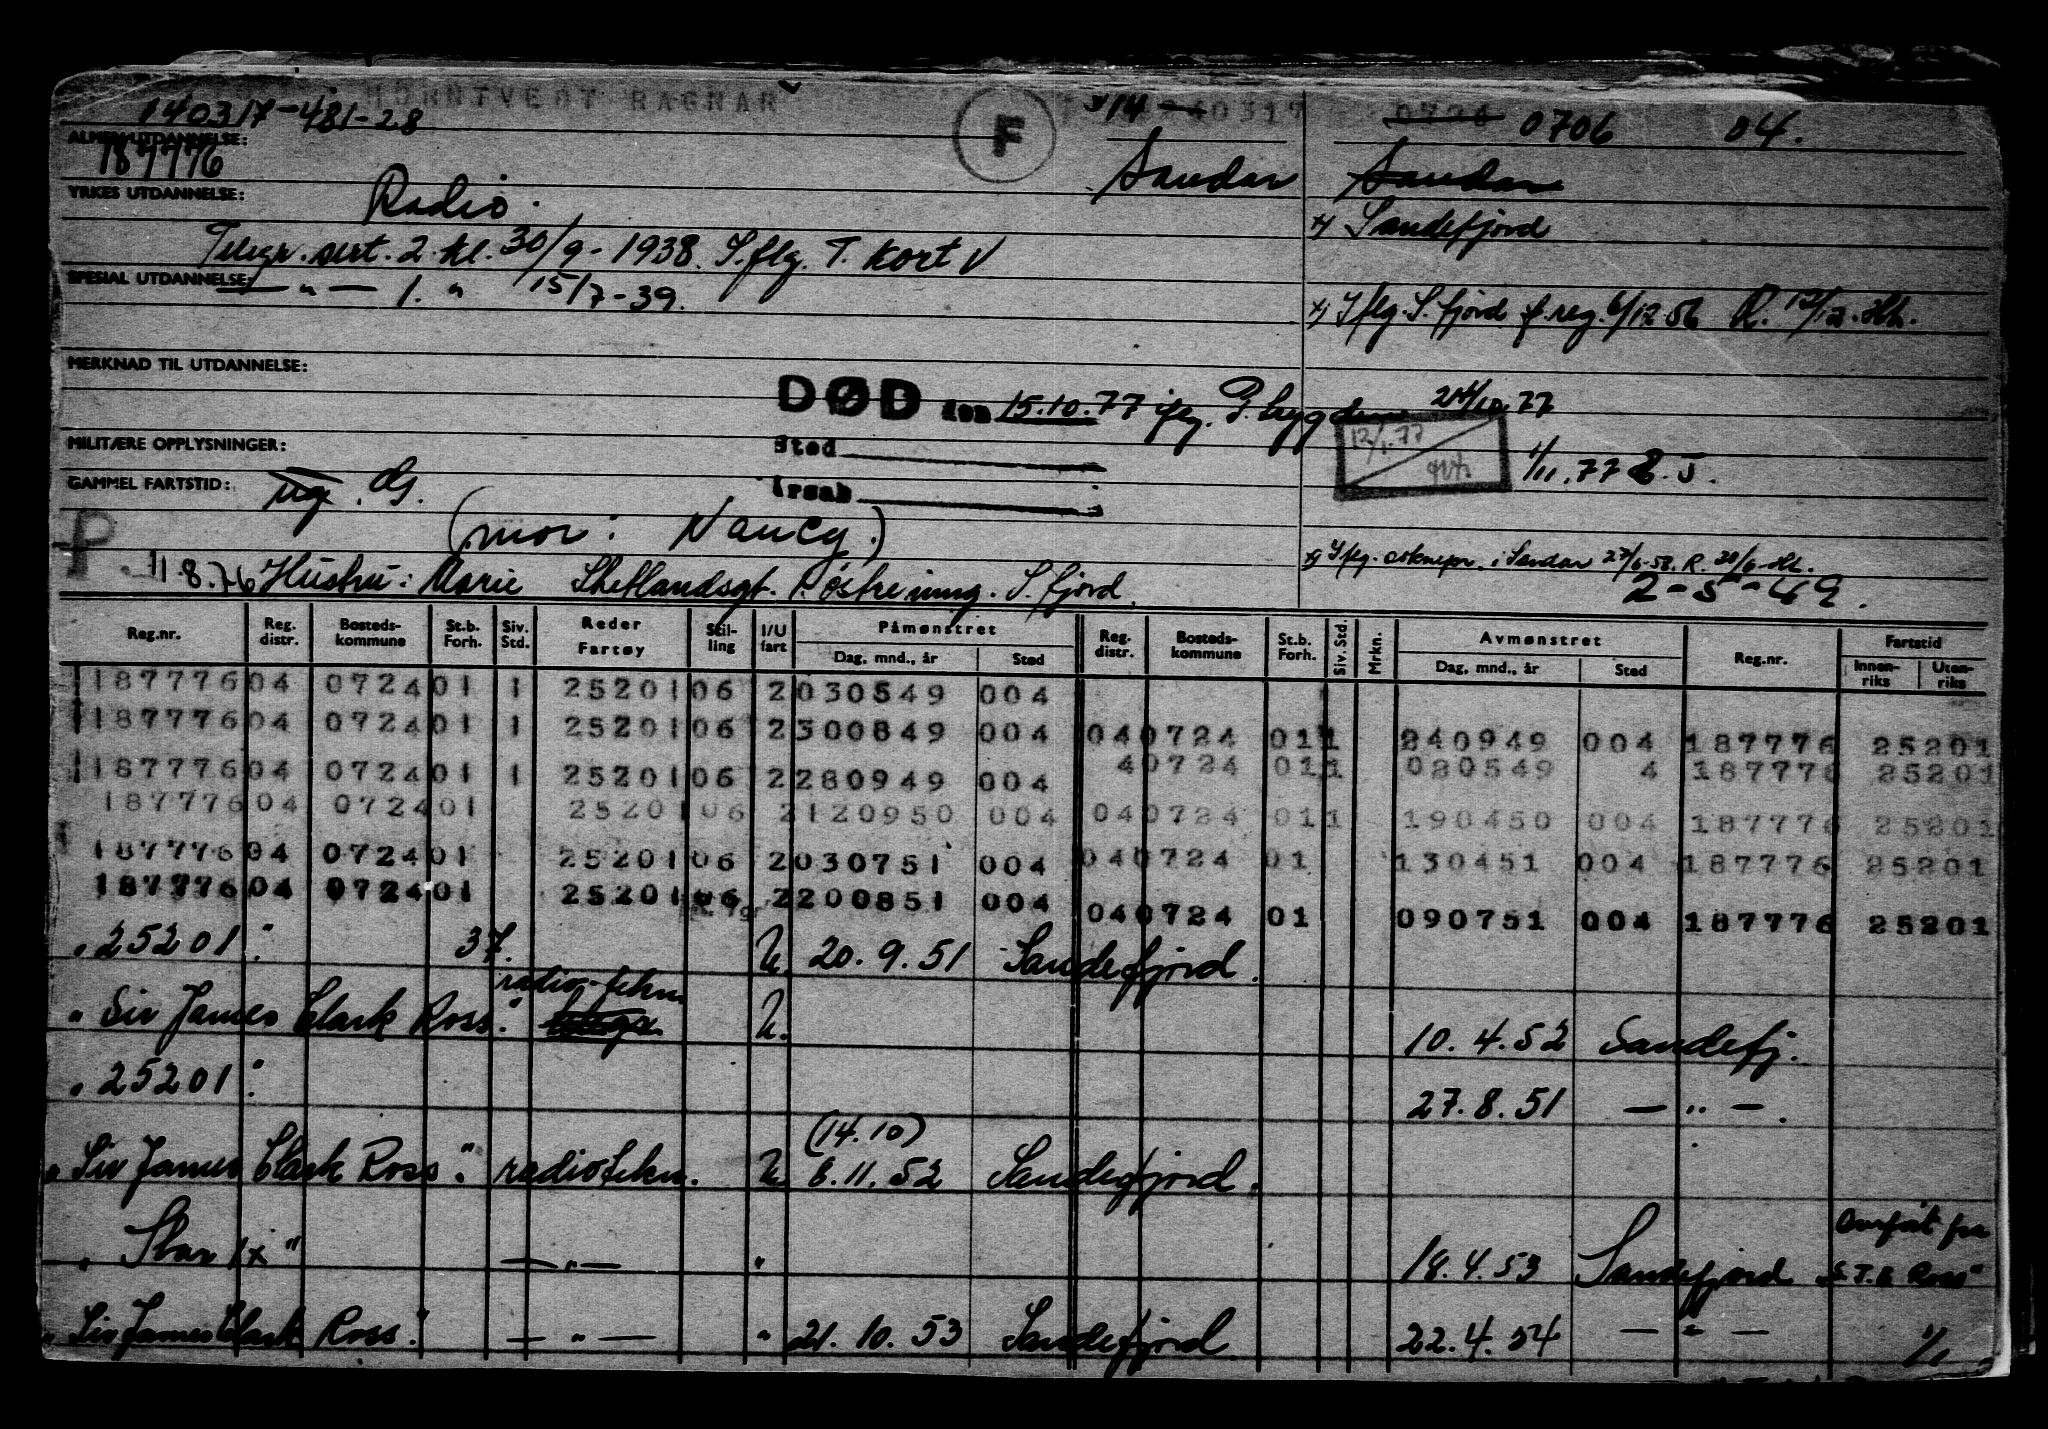 HORNTVEDT RAGNAR
140317-481-28 F 14 40317 0724 0706 04.
ALMEN UTDANNELSE:
187776 Sandar Sandar
YRKES UTDANNELSE: Radio.
x) Sandefjord
Telegr. sert. 2. kl. 30/9-1938. I.flg. T. kort V
SPESIAL UTDANNELSE: — " — 1. " 15/7-39.
x) Iflg. S.fjord f.reg. 6/12 56 R. 12/12. Hh.
MERKNAD TIL UTDANNELSE:
DØD den 15.10.77 ifg. P. bygden 24/10 77
MILITÆRE OPPLYSNINGER: Sted 12/1.77
1/11.77
GAMMEL FARTSTID: Årsak
P (mor: Nancy.)
11.8.76 Hustru: Marie Shetlandsgt. S.fjord.
i Sandar 27/6-58. R. 28/6-Hh.
2-5-49.
Reg.nr. Reg. distr. Bosteds-kommune St.b. Forh. Siv. Std. Reder Fartøy Stil-ling I/U fart Påmønstret Dag, mnd., år Sted Reg. distr. Bosteds-kommune St.b. Forh. Siv. Std. Mrkn. Avmønstret Dag, mnd., år Sted Reg.nr. Fartstid Innen-riks Uten-riks
187776 04 0724 01 1 25201 06 2 030549 004
187776 04 0724 01 1 25201 06 2 300849 004 04 0724 01 1 240949 004 187776 25201
187776 04 0724 01 1 25201 06 2 280949 004 4 0724 01 1 080549 4 187776 25201
187776 04 0724 01 25201 06 2 120950 004 04 0724 01 1 190450 004 187776 25201
187776 04 0724 01 25201 06 2 030751 004 04 0724 01 130451 004 187776 25201
187776 04 0724 01 25201 06 2 200851 004 04 0724 01 090751 004 187776 25201
"25201" 37. U. 20.9.51 Sandefjord.
"Sir James Clark Ross." radio-tekn. U. 10.4.52 Sandefj.
"25201". 27.8.51 — " —.
(14.10)
"Sir James Clark Ross". radiotekn. U. 6.11.52 Sandefjord.
"Star IX" — " — " 18.4.53 Sandefjord Overført fra "S.J.C. Ross"
"Sir James Clark Ross." — " — " 21.10.53 Sandefjord 22.4.54 — " — 1/1